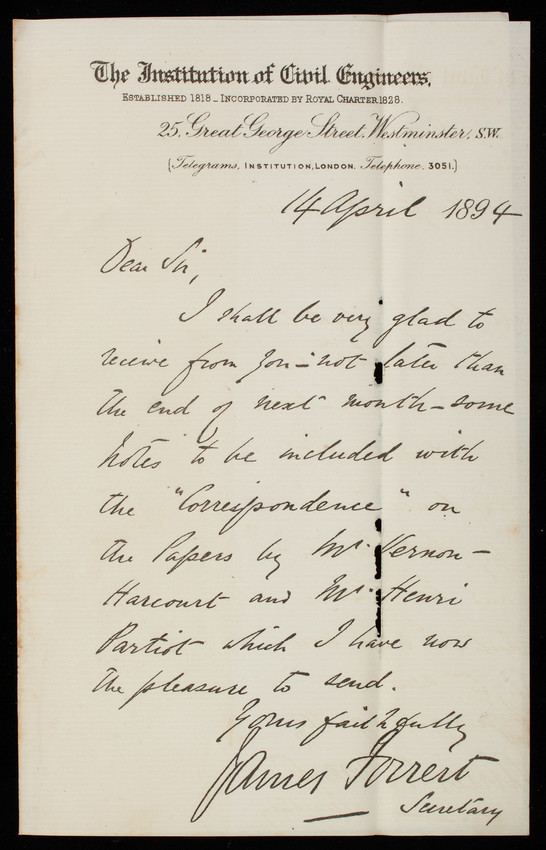 The Institution of Civil Engineers,
ESTABLISHED 1818_INCORPORATED BY ROYAL CHARTER 1828.
25, Great George Street, Westminster, S.W.
(Telegrams, INSTITUTION, LONDON. Telephone, 3051.)
14 April 1894
Dear Sir,
I shall be very glad to
receive from you – not later than
the end of next month – some
notes to be included with
the "Correspondence" on
the Papers by Mr. Vernon-
Harcourt and Mr. Henri
Partiot which I have now
the pleasure to send.
Yours faithfully
James Forrest
Secretary